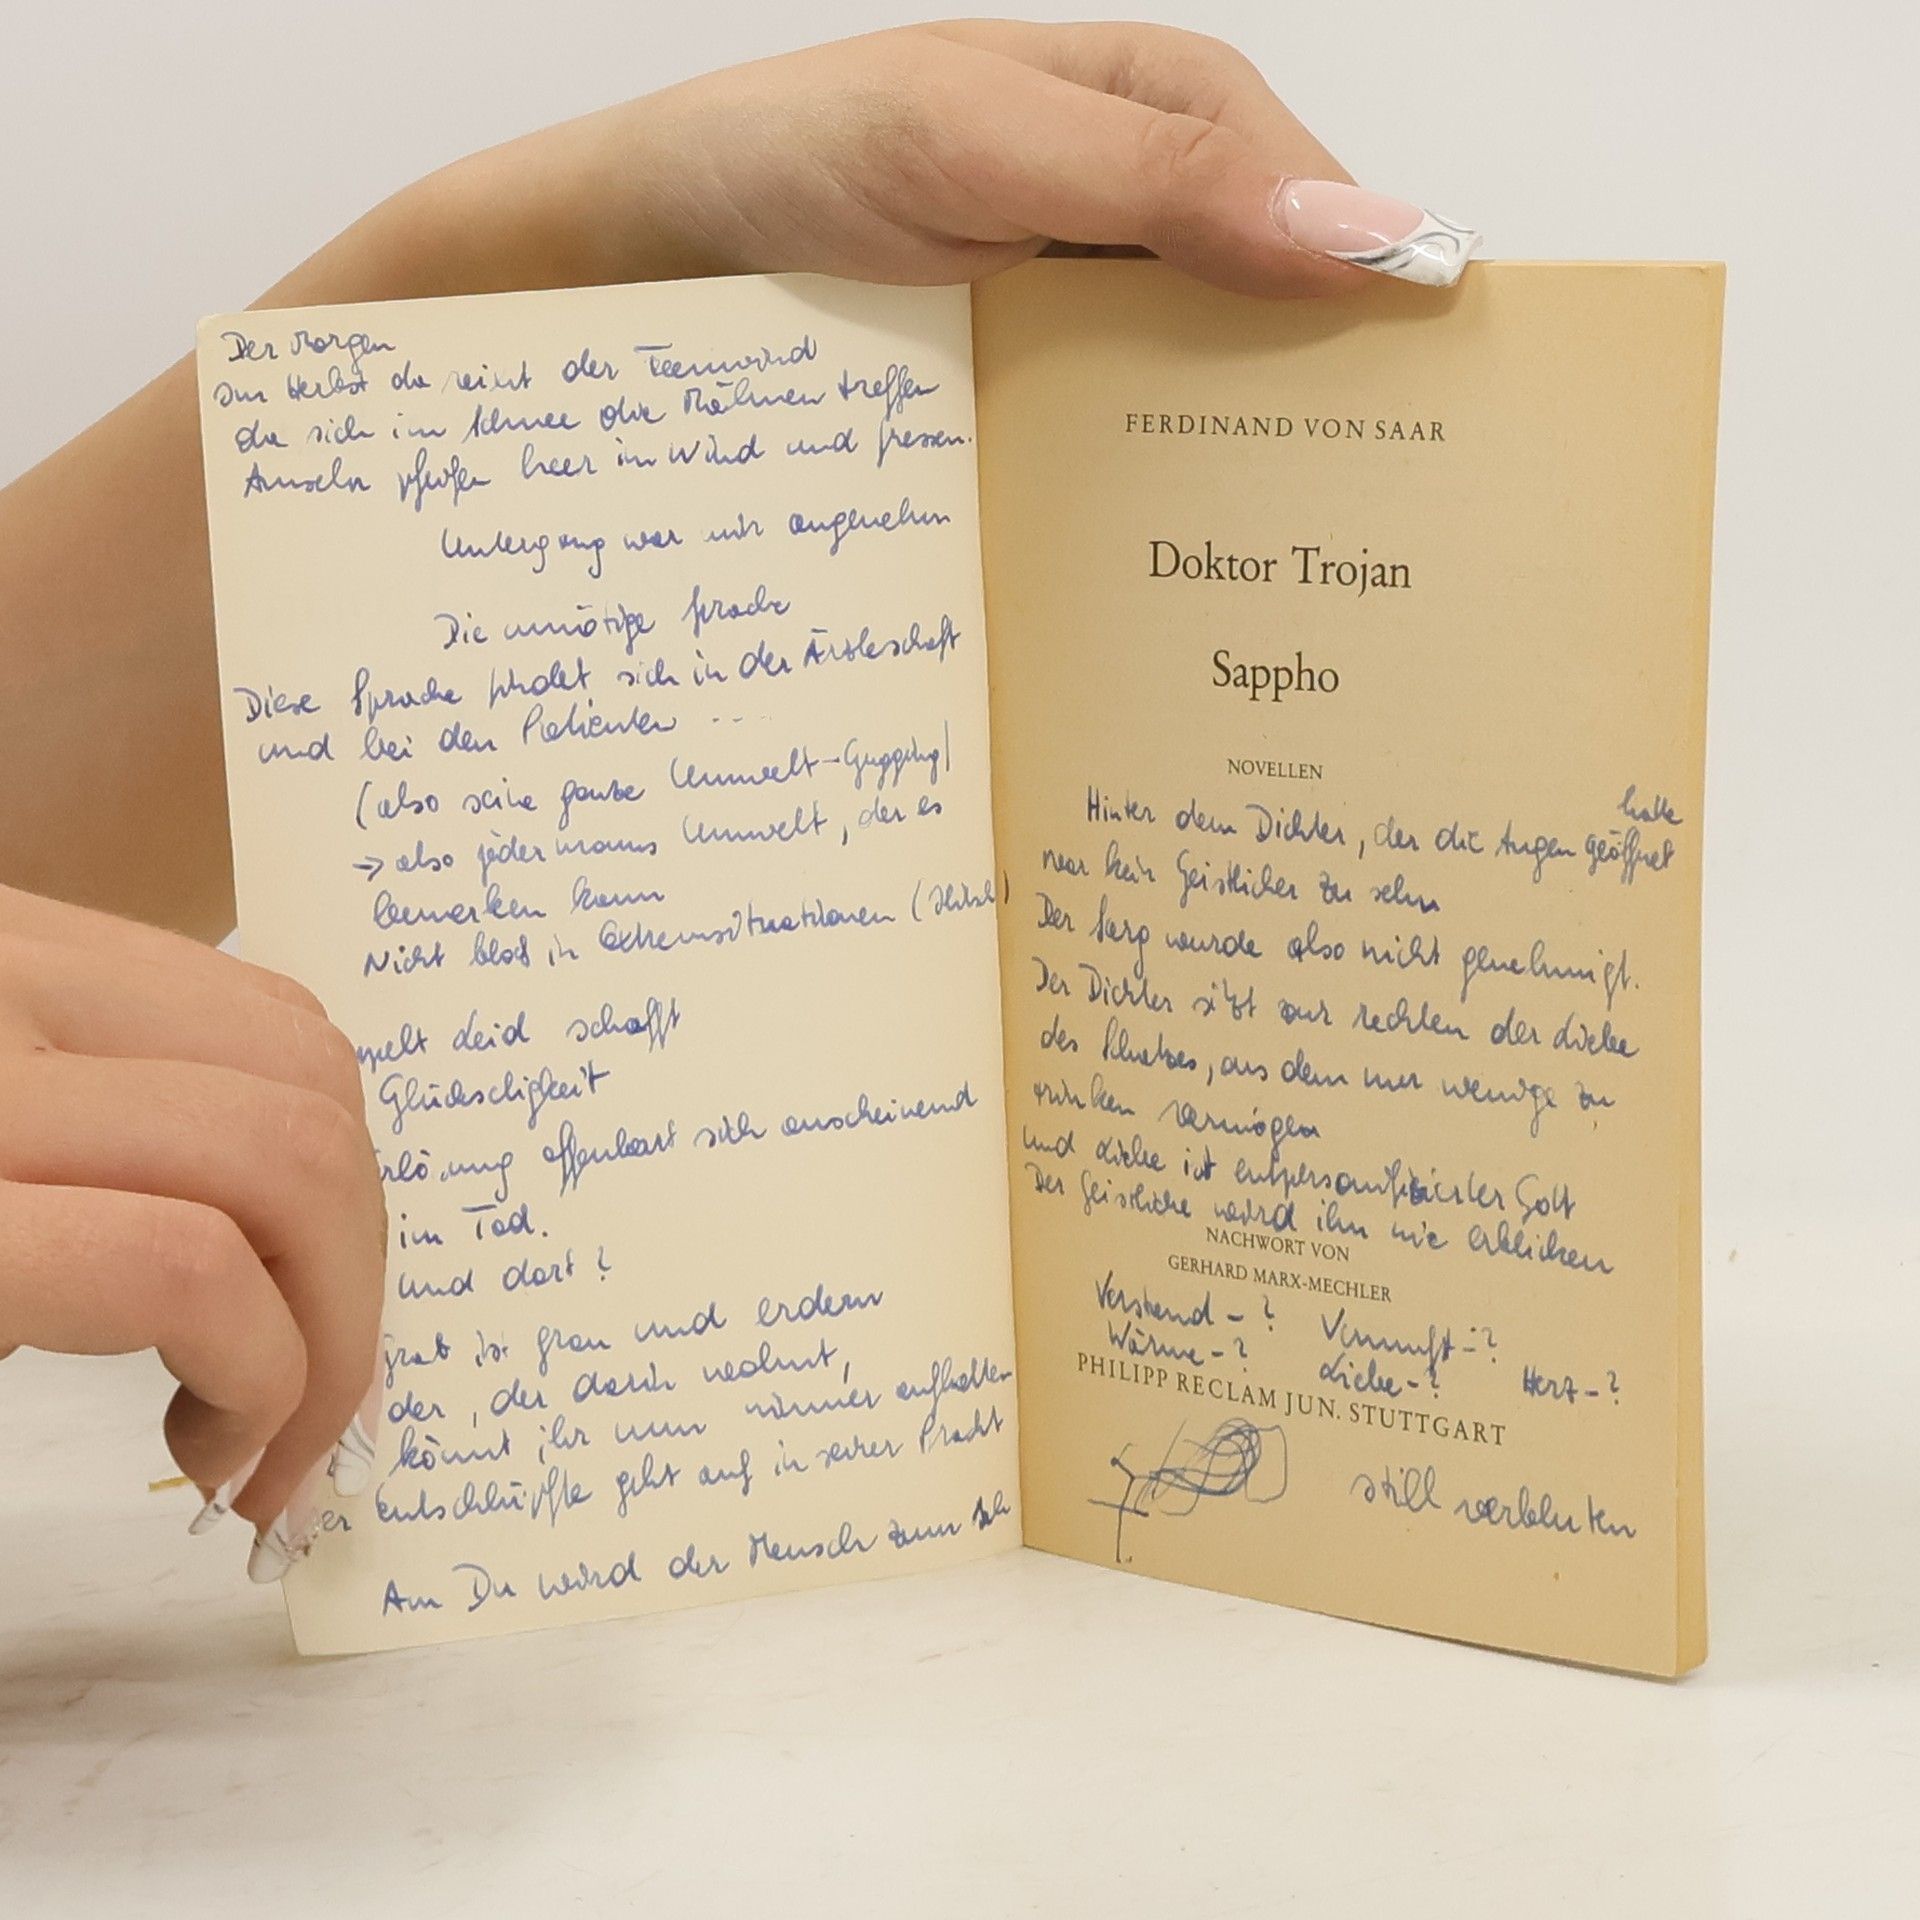 Der Morgen
Im Herbst da reiht der Feenwind
da sich im Schnee die Mähnen treffen
Amseln pfeifen heer im Wind und fressen.
Untergang war mir angenehm
Die unnötige Sprache
Diese Sprache findet sich in der Ärzteschaft
und bei den Patienten ...
(also seine ganze Umwelt-Gugging)
→ also jedermanns Umwelt, der es
bemerken kann
Nicht bloß in Extremsituationen
Leid schafft
Glückseligkeit
offenbart sich anscheinend
im Tod.
und dort?
Grab ist grau und erdern
der, der darin wohnt,
könnt ihr nun nimmer aufhalten
entschlüpfte geht auf in seiner Pracht
Am Du wird der Mensch zum Ich
FERDINAND VON SAAR
Doktor Trojan
Sappho
NOVELLEN
Hinter dem Dichter, der die Augen geöffnet hatte
war kein Geistlicher zu sehn
Der Sarg wurde also nicht genehmigt.
Der Dichter sitzt zur rechten der Liebe
des , aus dem nur wenige zu
trinken vermögen
und Liebe ist entpersonifizierter Gott
Der Geistliche wird ihn nie erblicken
NACHWORT VON
GERHARD MARX-MECHLER
Verstand - ? Vernunft - ?
Wärme - ? Liebe - ? Herz - ?
PHILIPP RECLAM JUN. STUTTGART
still verbluten